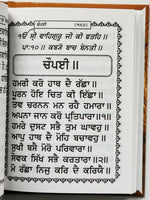 ਚੌਪਈ (੧੦੨)
ੴ ਸ੍ਰੀ ਵਾਹਿਗੁਰੂ ਜੀ ਕੀ ਫਤਹਿ॥
ਪਾ: ੧੦॥ ਕਬਯੋ ਬਾਚ ਬੇਨਤੀ॥
ਚੌਪਈ॥
ਹਮਰੀ ਕਰੋ ਹਾਥ ਦੈ ਰੱਛਾ॥
ਪੂਰਨ ਹੋਇ ਚਿਤ ਕੀ ਇੱਛਾ॥
ਤਵ ਚਰਨਨ ਮਨ ਰਹੈ ਹਮਾਰਾ॥
ਅਪਨਾ ਜਾਨ ਕਰੋ ਪ੍ਰਤਿਪਾਰਾ॥੧॥
ਹਮਰੇ ਦੁਸਟ ਸਭੈ ਤੁਮ ਘਾਵਹੁ॥
ਆਪੁ ਹਾਥ ਦੈ ਮੋਹਿ ਬਚਾਵਹੁ॥
ਸੁਖੀ ਬਸੈ ਮੋਰੋ ਪਰਿਵਾਰਾ॥
ਸੇਵਕ ਸਿੱਖ ਸਭੈ ਕਰਤਾਰਾ॥੨॥
ਮੋ ਰੱਛਾ ਨਿਜੁ ਕਰਿ ਦੈ ਕਰਿਯੈ॥